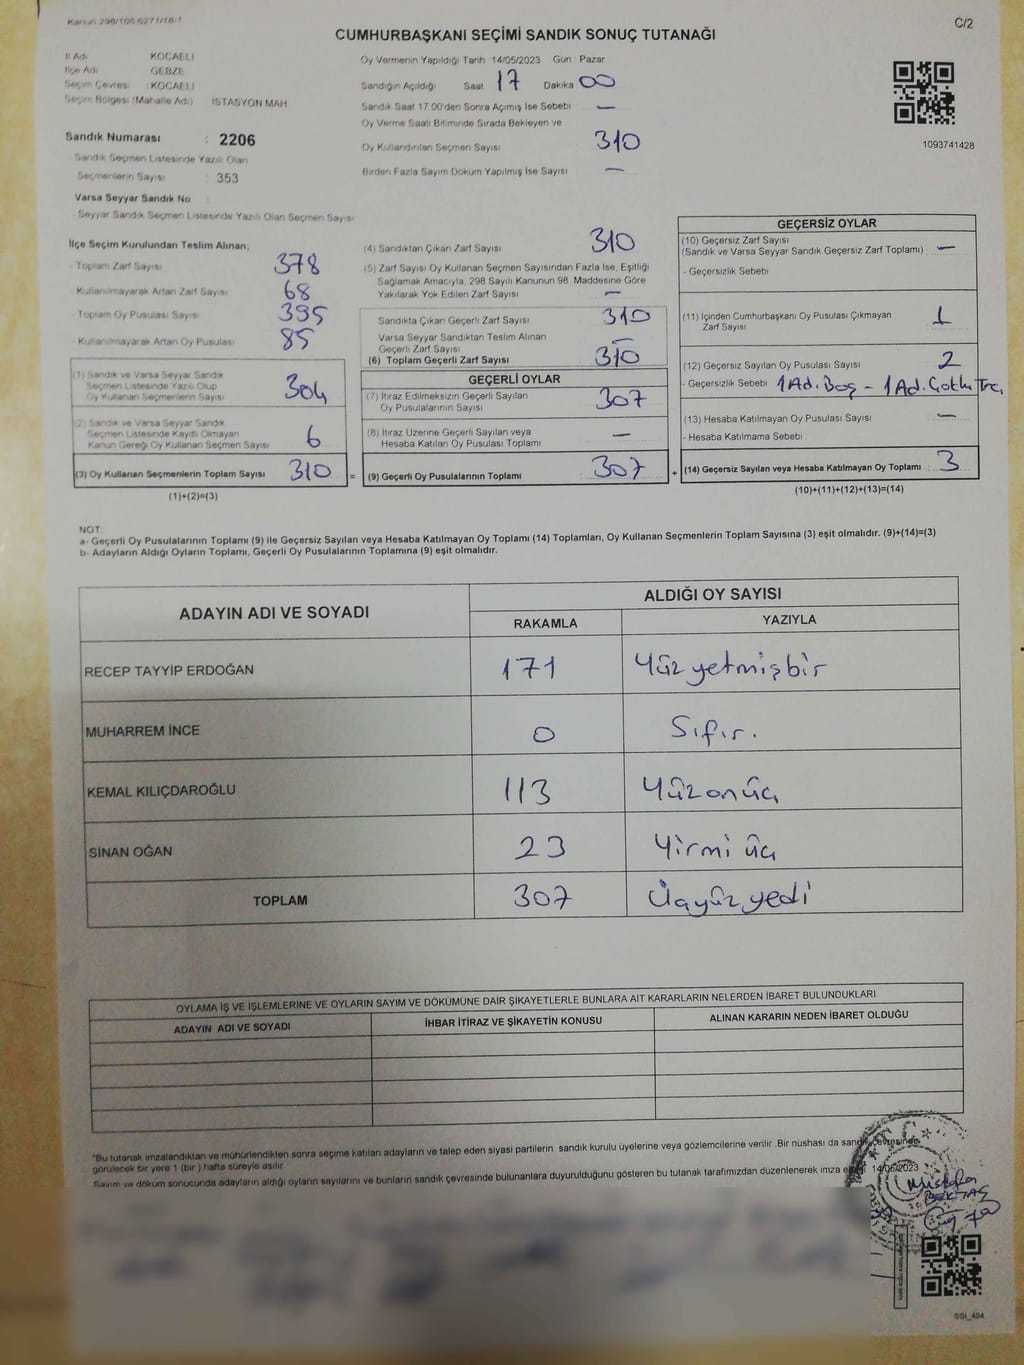 Kanun 298/106 6271/18-1
C/2
CUMHURBAŞKANI SEÇİMİ SANDIK SONUÇ TUTANAĞI
İl Adı KOCAELİ
İlçe Adı GEBZE
Seçim Çevresi : KOCAELİ
Seçim Bölgesi (Mahalle Adı) İSTASYON MAH
Sandık Numarası : 2206
Sandık Seçmen Listesinde Yazılı Olan
Seçmenlerin Sayısı : 353
Varsa Seyyar Sandık No
Seyyar Sandık Seçmen Listesinde Yazılı Olan Seçmen Sayısı
Oy Vermenin Yapıldığı Tarih 14/05/2023 Gün Pazar
Sandığın Açıldığı Saat 17 Dakika 00
Sandık Saat 17.00'den Sonra Açımış İse Sebebi —
Oy Verme Saati Bitiminde Sırada Bekleyen ve
Oy Kullandırılan Seçmen Sayısı 310
Birden Fazla Sayım Döküm Yapılmış İse Sayısı —
1093741428
İlçe Seçim Kurulundan Teslim Alınan;
- Toplam Zarf Sayısı 378
- Kullanılmayarak Artan Zarf Sayısı 68
- Toplam Oy Pusulası Sayısı 395
- Kullanılmayarak Artan Oy Pusulası 85
(1) Sandık ve Varsa Seyyar Sandık
Seçmen Listesinde Yazılı Olup
Oy Kullanan Seçmenlerin Sayısı 304
(2) Sandık ve Varsa Seyyar Sandık
Seçmen Listesinde Kayıtlı Olmayan
Kanun Gereği Oy Kullanan Seçmen Sayısı 6
(3) Oy Kullanan Seçmenlerin Toplam Sayısı 310
(1)+(2)=(3)
(4) Sandıktan Çıkan Zarf Sayısı 310
(5) Zarf Sayısı Oy Kullanan Seçmen Sayısından Fazla İse, Eşitliği
Sağlamak Amacıyla, 298 Sayılı Kanunun 98. Maddesine Göre
Yakılarak Yok Edilen Zarf Sayısı —
Sandıkta Çıkan Geçerli Zarf Sayısı 310
Varsa Seyyar Sandıktan Teslim Alınan
Geçerli Zarf Sayısı —
(6) Toplam Geçerli Zarf Sayısı 310
GEÇERLİ OYLAR
(7) İtiraz Edilmeksizin Geçerli Sayılan
Oy Pusulalarının Sayısı 307
(8) İtiraz Üzerine Geçerli Sayılan veya
Hesaba Katılan Oy Pusulası Toplamı —
= (9) Geçerli Oy Pusulalarının Toplamı : 307
GEÇERSİZ OYLAR
(10) Geçersiz Zarf Sayısı
(Sandık ve Varsa Seyyar Sandık Geçersiz Zarf Toplamı) : —
- Geçersizlik Sebebi
(11) İçinden Cumhurbaşkanı Oy Pusulası Çıkmayan
Zarf Sayısı 1
(12) Geçersiz Sayılan Oy Pusulası Sayısı 2
- Geçersizlik Sebebi 1 Ad. Boş - 1 Ad. Çoklu Trc.
(13) Hesaba Katılmayan Oy Pusulası Sayısı —
- Hesaba Katılmama Sebebi
+ (14) Geçersiz Sayılan veya Hesaba Katılmayan Oy Toplamı : 3
(10)+(11)+(12)+(13)=(14)
NOT:
a- Geçerli Oy Pusulalarının Toplamı (9) ile Geçersiz Sayılan veya Hesaba Katılmayan Oy Toplamı (14) Toplamları, Oy Kullanan Seçmenlerin Toplam Sayısına (3) eşit olmalıdır. (9)+(14)=(3)
b- Adayların Aldığı Oyların Toplamı, Geçerli Oy Pusulalarının Toplamına (9) eşit olmalıdır.
ADAYIN ADI VE SOYADI
ALDIĞI OY SAYISI
RAKAMLA YAZIYLA
RECEP TAYYİP ERDOĞAN 171 Yüzyetmişbir
MUHARREM İNCE 0 Sıfır.
KEMAL KILIÇDAROĞLU 113 Yüzonüç
SİNAN OĞAN 23 Yirmi üç
TOPLAM 307 Üçyüzyedi
OYLAMA İŞ VE İŞLEMLERİNE VE OYLARIN SAYIM VE DÖKÜMÜNE DAİR ŞİKAYETLERLE BUNLARA AİT KARARLARIN NELERDEN İBARET BULUNDUKLARI
ADAYIN ADI VE SOYADI İHBAR İTİRAZ VE ŞİKAYETİN KONUSU ALINAN KARARIN NEDEN İBARET OLDUĞU
*Bu tutanak imzalandıktan ve mühürlendikten sonra seçime katılan adayların ve talep eden siyasi partilerin sandık kurulu üyelerine veya gözlemcilerine verilir .Bir nüshası da sandık çevresinde
görülecek bir yere 1 (bir ) hafta süreyle asılır.
Sayım ve döküm sonucunda adayların aldığı oyların sayılarını ve bunların sandık çevresinde bulunanlara duyurulduğunu gösteren bu tutanak tarafımızdan düzenlenerek imza 14/05/2023
Mustafa
BEKTAŞ
SSI_404